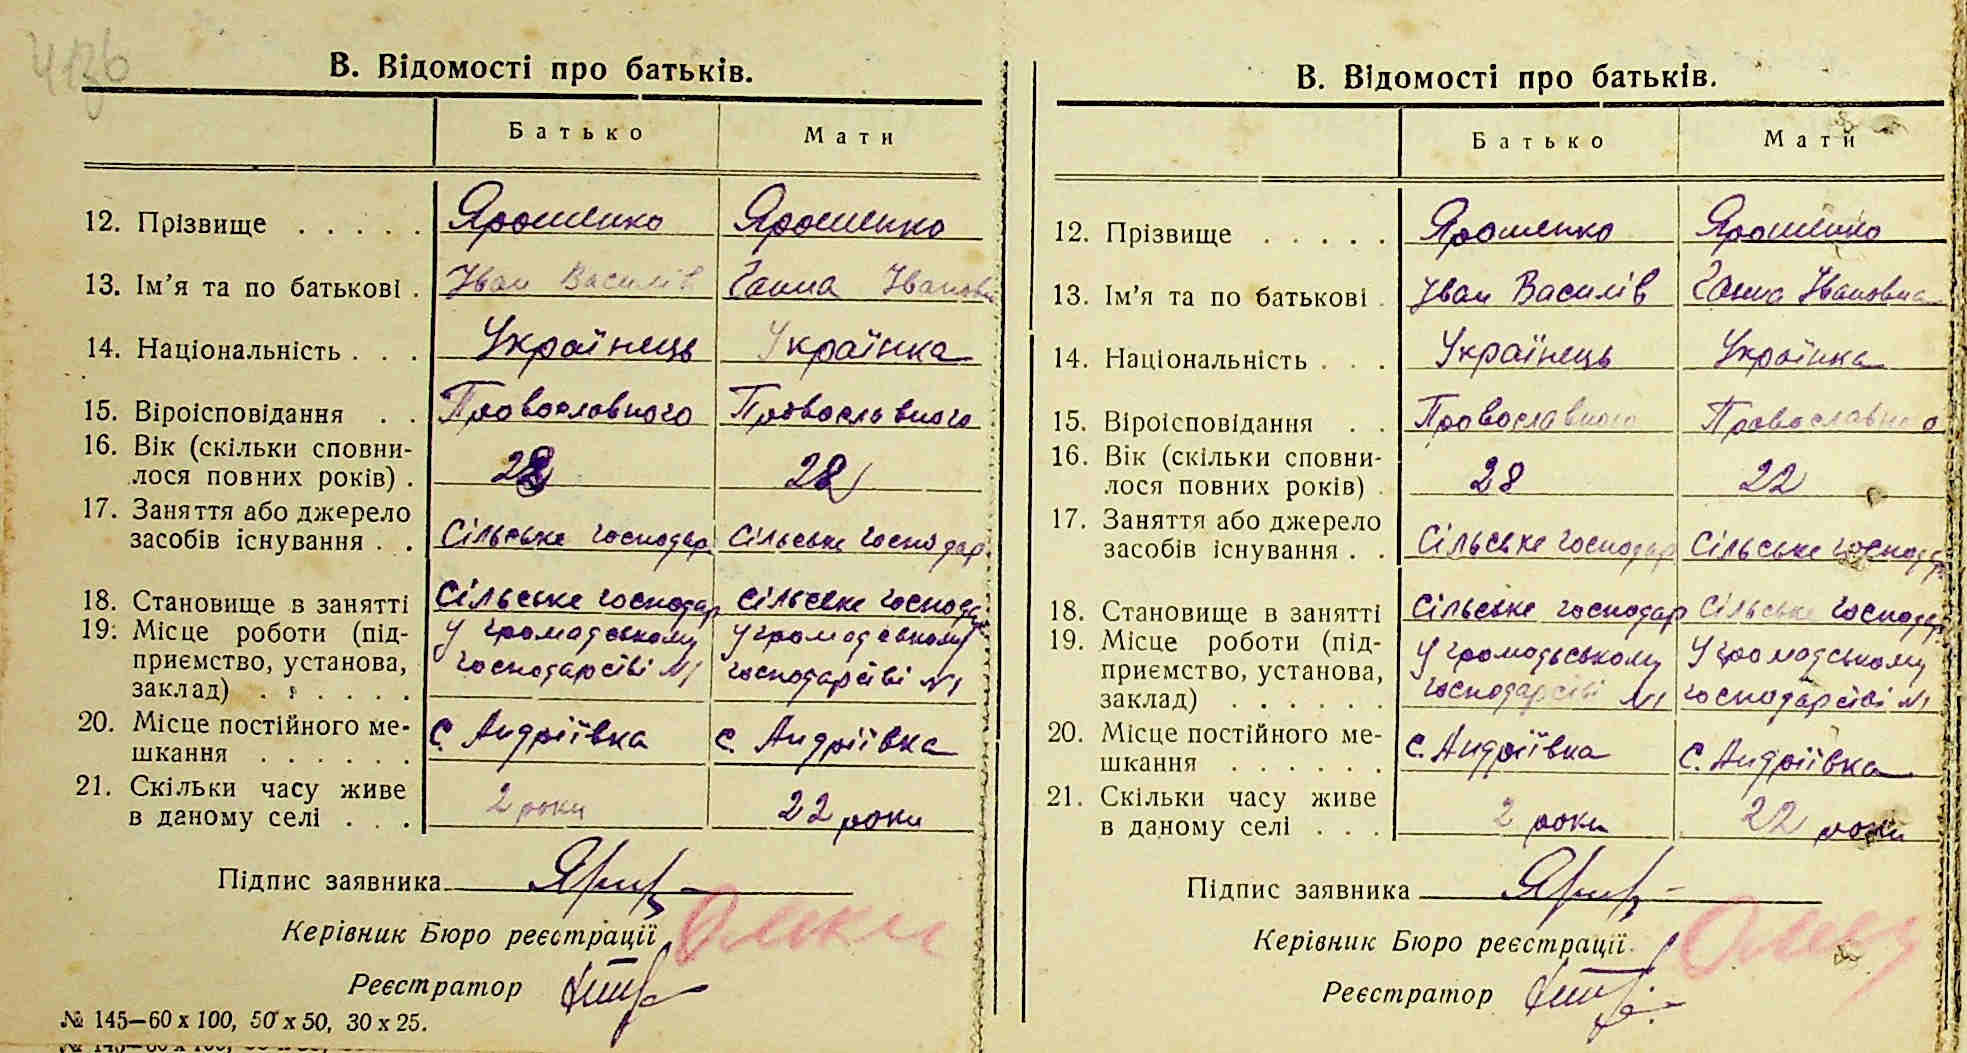 В. Відомості про батьків.
Батько Мати
12. Прізвище . . . . . Ярошенко Ярошенко
13. Ім'я та по батькові . Іван Василів Ганна Івановна
14. Національність . . . Українець Українка
15. Віроісповідання . . Провославного Провославного
16. Вік (скільки сповни-
лося повних років) . 28 22
17. Заняття або джерело
засобів існування . . Сільське господар Сільське господар.
18. Становище в занятті Сільське господар Сільське господар
19. Місце роботи (під- У громадському У громадському
приємство, установа, господарстві №1 господарстві №1
заклад) . . . . . .
20. Місце постійного ме- с. Андріївка с. Андріївка
шкання . . . . . .
21. Скільки часу живе 2 роки 22 роки
в даному селі . . .
Підпис заявника
Керівник Бюро реєстрації
Реєстратор
№ 145—60 х 100, 50 х 50, 30 х 25.
В. Відомості про батьків.
Батько Мати
12. Прізвище . . . . . Ярошенко Ярошенко
13. Ім'я та по батькові . Іван Василів Ганна Івановна
14. Національність . . . Українець Українка
15. Віроісповідання . . Провославного Провославного
16. Вік (скільки сповни-
лося повних років) . 28 22
17. Заняття або джерело
засобів існування . . Сільське господар Сільське господар.
18. Становище в занятті Сільське господар Сільське господар.
19. Місце роботи (під- У громадському У громадському
приємство, установа, господарстві №1 господарстві №1
заклад) . . . . . .
20. Місце постійного ме- с. Андріївка с. Андріївка
шкання . . . . . .
21. Скільки часу живе 2 роки 22 роки
в даному селі . . .
Підпис заявника
Керівник Бюро реєстрації
Реєстратор